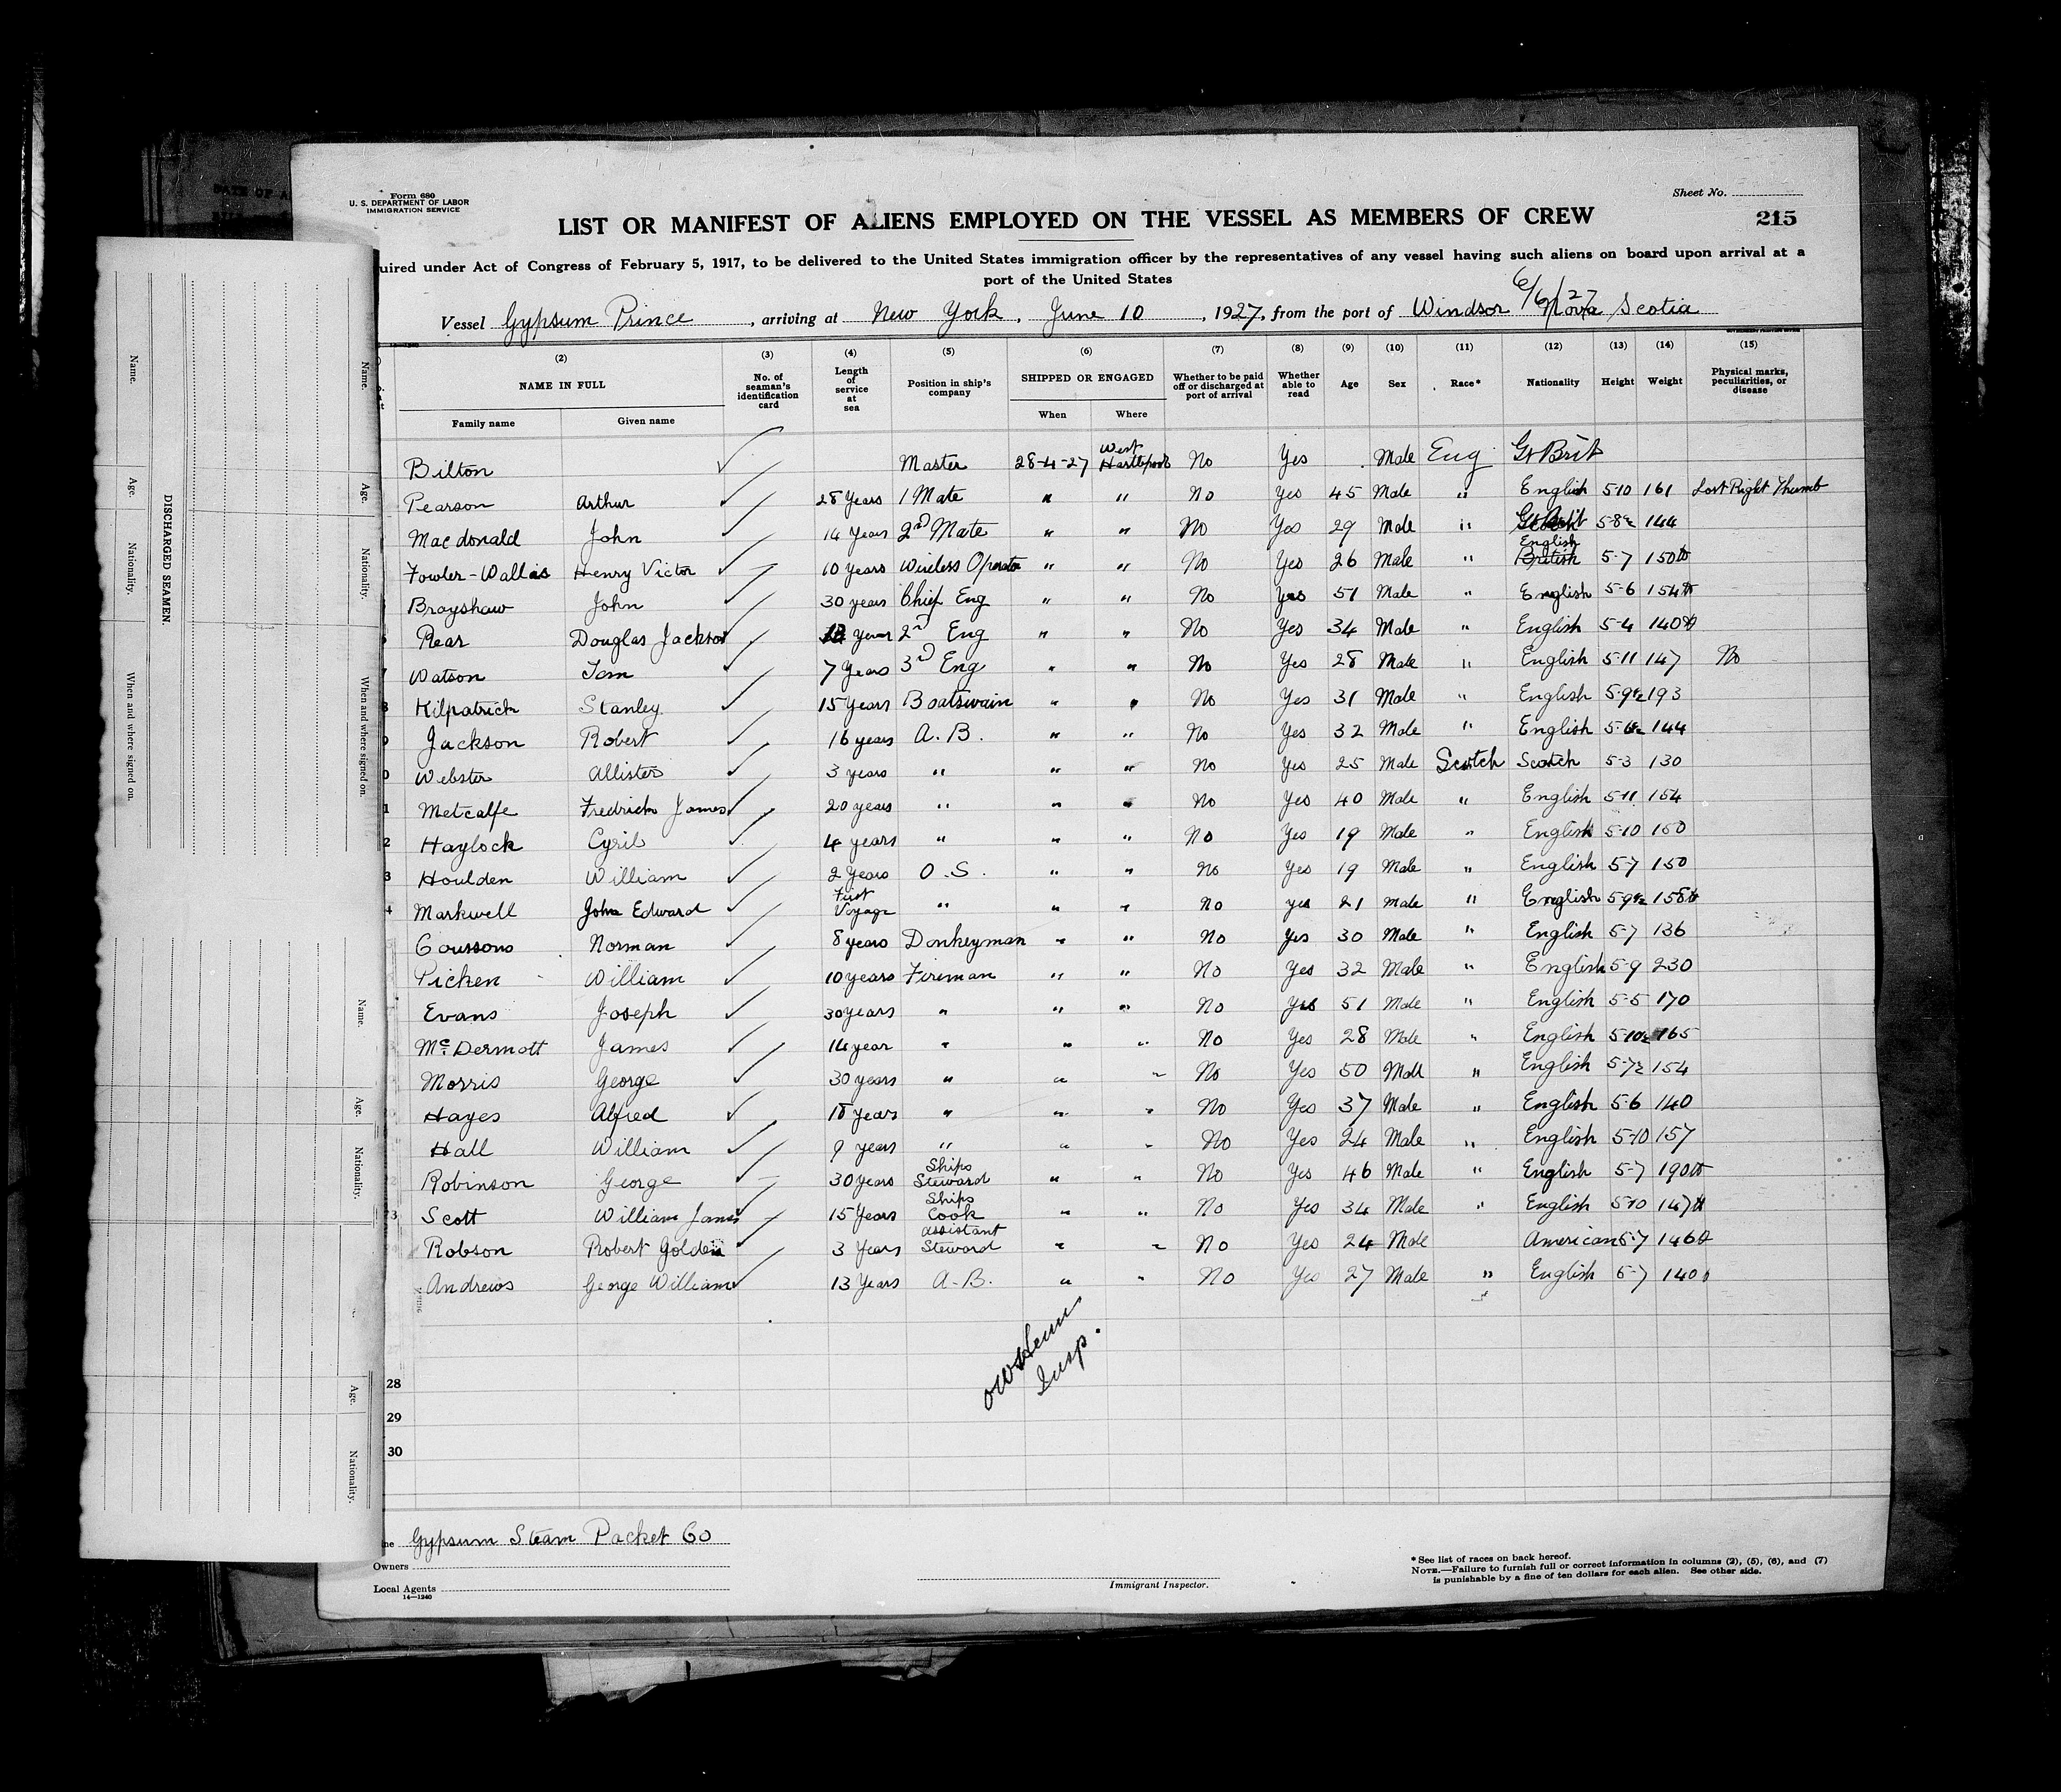 Form 680
U. S. DEPARTMENT OF LABOR
IMMIGRATION SERVICE
Sheet No.
LIST OR MANIFEST OF ALIENS EMPLOYED ON THE VESSEL AS MEMBERS OF CREW
215
uired under Act of Congress of February 5, 1917, to be delivered to the United States immigration officer by the representatives of any vessel having such aliens on board upon arrival at a
port of the United States
6/6/27
Vessel Gypsum Prince, arriving at New York, June 10, 1927, from the port of Windsor Nova Scotia
(2) (3) (4) (5) (6) (7) (8) (9) (10) (11) (12) (13) (14) (15)
NAME IN FULL
Family name Given name
No. of seaman's identification card
Length of service at sea
Position in ship's company
SHIPPED OR ENGAGED
When Where
Whether to be paid off or discharged at port of arrival
Whether able to read
Age
Sex
Race*
Nationality
Height
Weight
Physical marks, peculiarities, or disease
Bilton Master 28-4-27 West Hartlepool No Yes Male Eng Gt Brit
Pearson Arthur 28 Years 1 Mate " " No Yes 45 Male " English 5-10 161 Lost Right Thumb
Macdonald John 14 Years 2nd Mate " " No Yes 29 Male " 5-8½ 144
Fowler-Wallis Henry Victor 10 years Wireless Operator " " No Yes 26 Male " English British 5-7 150lb
Brayshaw John 30 years Chief Eng " " No Yes 51 Male " English 5-6 154lb
Rear Douglas Jackson years 2nd Eng " " No Yes 34 Male " English 5-4 140lb
7 Watson Tom 7 Years 3rd Eng " " No Yes 28 Male " English 5-11 147 No
Kilpatrick Stanley 15 Years Boatswain " " No Yes 31 Male " English 5-9½ 193
Jackson Robert 16 years A.B. " " No Yes 32 Male " English 144
0 Webster Allister 3 years " " " No Yes 25 Male Scotch Scotch 5-3 130
1 Metcalfe Fredrick James 20 years " " " No Yes 40 Male " English 5-11 154
2 Haylock Cyril 4 years " " " No Yes 19 Male " English 5-10 150
3 Houlden William 2 Years O.S. " " No Yes 19 Male " English 5-7 150
4 Markwell John Edward First Voyage " " " No yes 21 Male " English 5-9½ 158lb
Coussons Norman 8 years Donkeyman " " No Yes 30 Male " English 5-7 136
Picken William 10 years Fireman " " No Yes 32 Male " English 5-9 230
Evans Joseph 30 years " " " No Yes 51 Male " English 5-5 170
McDermott James 14 year " " " No Yes 28 Male " English 5-10½ 165
Morris George 30 years " " " No Yes 50 Male " English 5-7½ 154
Hayes Alfred 18 years " " " No Yes 37 Male " English 5-6 140
Hall William 9 years " " " No Yes 24 Male " English 5-10 157
Robinson George 30 years Ships Steward " " No Yes 46 Male " English 5-7 190lb
3 Scott William James 15 Years Ships Cook " " No Yes 34 Male " English 5-10 147lb
Robson Robert Golden 3 Years assistant Steward " " No Yes 24 Male American 5-7 146lb
Andrews George William 13 Years A-B. " " No Yes 27 Male " English 5-7 140
Insp.
28
29
30
ne Gypsum Steam Packet Co
Owners
Local Agents
14—1240
Immigrant Inspector.
* See list of races on back hereof.
NOTE.—Failure to furnish full or correct information in columns (2), (5), (6), and (7)
is punishable by a fine of ten dollars for each alien. See other side.
DISCHARGED SEAMEN.
Name. Age. Nationality. When and where signed on.
Name. Age. Nationality. When and where signed on.
Name. Age. Nationality.
Age. Nationality.